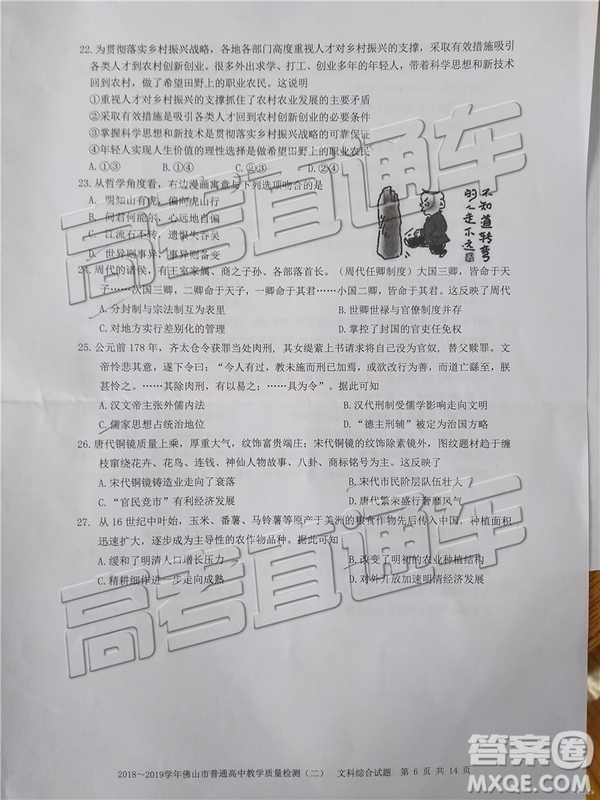 22. 为贯彻落实乡村振兴战略，各地各部门高度重视人才对乡村振兴的支撑，采取有效措施吸引
各类人才到农村创新创业。很多外出求学、打工、创业多年的年轻人，带着科学思想和新技术
回到农村，做了希望田野上的职业农民。这说明
①重视人才对乡村振兴的支撑抓住了农村农业发展的主要矛盾
②采取有效措施是吸引各类人才回到农村创新创业的必要条件
③掌握科学思想和新技术是贯彻落实乡村振兴战略的可靠保证
④年轻人实现人生价值的理性选择是做希望田野上的职业农民
A. ①③ B. ①② C. ②③ D. ②④
23. 从哲学角度看，右边漫画寓意与下列选项吻合的是
A. 明知山有虎，偏向虎山行
B. 问君何能尔，心远地自偏
C. 江流石不转，遗恨失吞吴
D. 世异则事异，事异则备变
不知道转弯
的人走不远
24. 周代的诸侯，有王室家属、商之子孙、各部落首长。（周代任卿制度）大国三卿，皆命于天
子……次国三卿，二卿命于天子，一卿命于其君……小国二卿，皆命于其君。这反映了周代
A. 分封制与宗法制互为表里 B. 世卿世禄与官僚制度并存
C. 对地方实行差别化的管理 D. 掌控了封国的官吏任免权
25. 公元前 178 年，齐太仓令获罪当处肉刑，其女缇萦上书请求将自己没为官奴，替父赎罪。文
帝怜悉其意，遂下令曰：“今人有过，教未施而刑已加焉，或欲改行为善，而道亡繇至，朕甚
怜之。……其除肉刑，有以易之；……具为令”。据此可知
A. 汉文帝主张外儒内法 B. 汉代刑罚受儒学影响走向文明
C. 儒家思想占统治地位 D. “德主刑辅”被定为治国方略
26. 唐代铜镜质量上乘，厚重大气，纹饰富贵端庄；宋代铜镜的纹饰除素镜外，图纹题材趋于缠
枝窜绕花卉、花鸟、连钱、神仙人物故事、八卦、商标铭文等。这反映了
A. 宋代铜镜铸造业走向了衰落 B. 宋代市民阶层队伍壮大
C. “官民竞市”有利经济发展 D. 唐代繁荣盛行奢靡风气
27. 从 16 世纪中叶始，玉米、番薯、马铃薯等原产于美洲的粮食作物先后传入中国，种植面积
迅速扩大，逐步成为主导性的农作物品种。据此可知
A. 缓和了明清人口增长压力 B. 改变了明初的农业种植结构
C. 精耕细作进一步走向成熟 D. 对外开放加速明清经济发展
高考直通车
高考直通车
高考直通车
2018～2019学年佛山市普通高中教学质量检测（二） 文科综合试题 第 6 页 共 14 页
答案圈